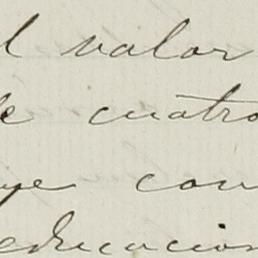 l valor
de cuatro
que con
educacion